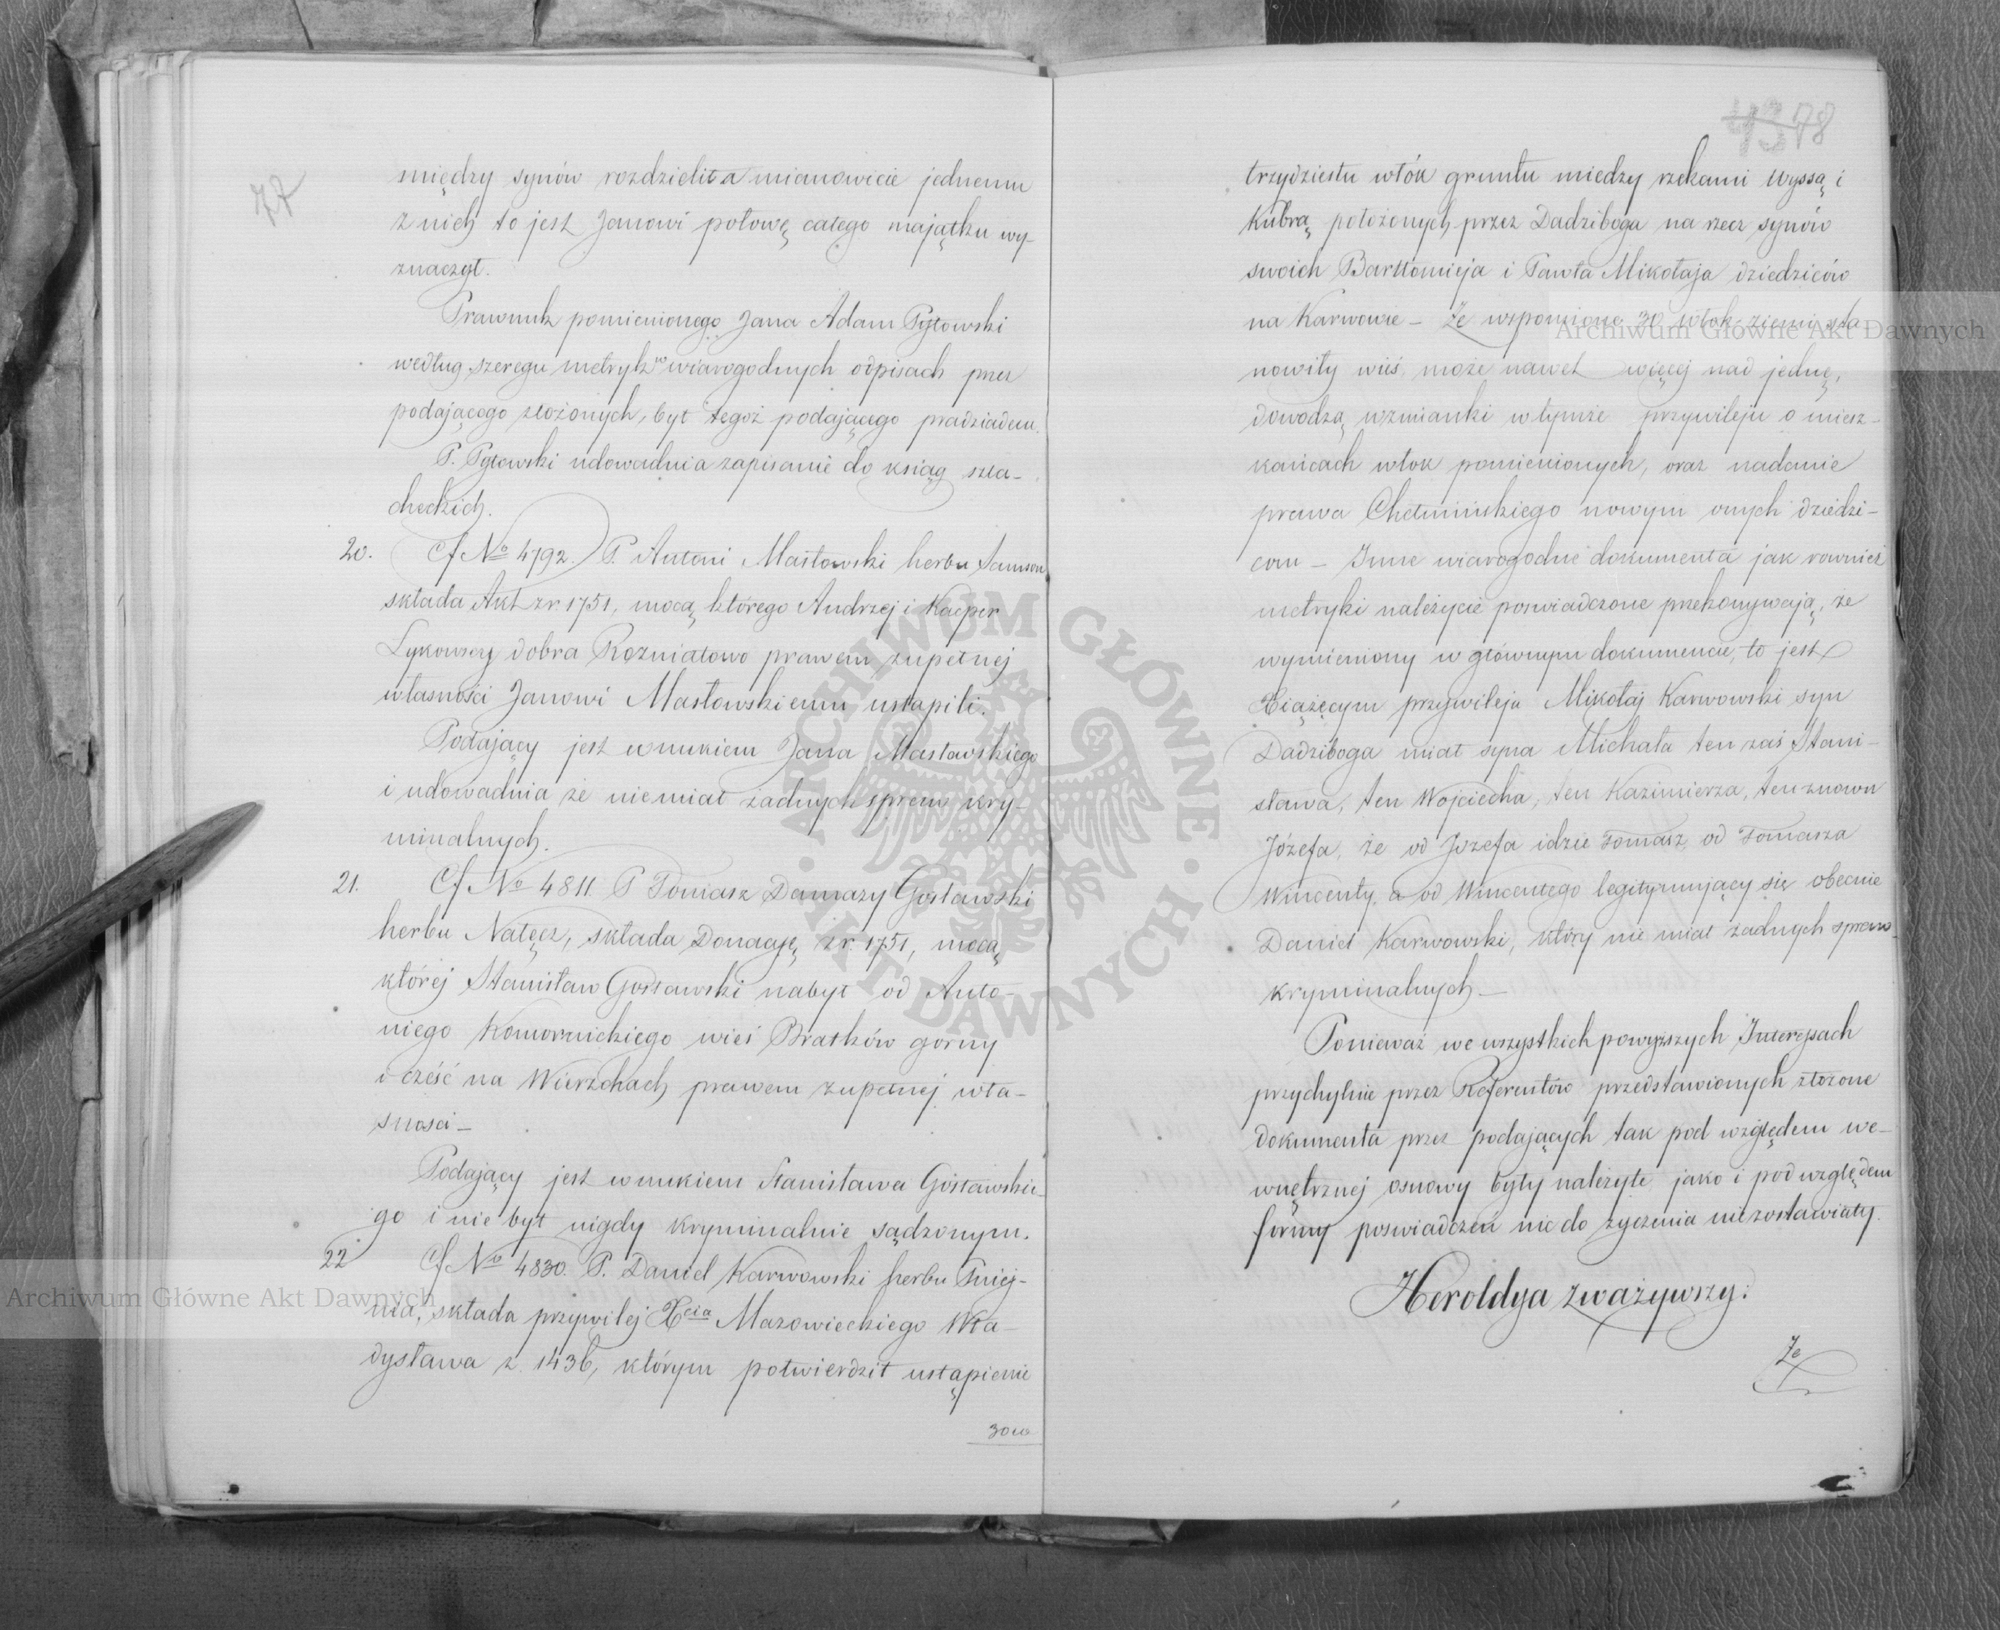 77
między synów rozdzielił a mianowicie jednemu
z nich to jest Janowi połowę całego majątku wy-
znaczył.
Prawnuk pomienionego Jana Adam Pgłowski
według szeregu metryk w wiarogodnych odpisach przez
podającego złożonych, był tegoż podającego pradziadem.
P. Pgłowski udowadnia zapisanie do ksiąg szla-
checkich.
20. Cf No 4792. P. Antoni Masłowski herbu Samson
składa Akt z r. 1751, mocą którego Andrzej i Kacper
Łykowscy dobra Rozniatowo prawem zupełnej
własności Janowi Masłowskiemu ustąpili.
Podający jest wnukiem Jana Masłowskiego
i udowadnia że niemiał żadnych spraw kry-
minalnych.
21. Cf No 4811 P Tomasz Damazy Gosławski
herbu Nałęcz, składa Donacyę z r. 1751, mocą
której Stanisław Gosławski nabył od Anto-
niego Komornickiego wieś Bratków gorny
i cześć na Wierzchach prawem zupełnej wła-
snosci –
Podający jest wnukiem Stanisława Gosławskie-
go i nie był nigdy kryminalnie sądzonym.
22 Cf No 4830. P. Daniel Karwowski herbu Pniej-
nia, składa przywilej Xcia Mazowieckiego Wła-
dysława z 1436, którym potwierdził ustąpienie
4378
trzydziestu włók gruntu miedzy rzekami Wyssą i
Kubrą położonych przez Dadziboga na rzecz synów
swoich Bartłomieja i Pawła Mikołaja dziedziców
na Karwowie – Że wspomione 30 włok ziemi sta
nowiły wieś, może nawet więcej nad jednę,
dowodzą wzmianki w tymże przywileju o miesz-
kańcach włok pomienionych, oraz nadanie
prawa Chełmińskiego nowym onych dziedzi-
com – Inne wiarogodne dokumenta jak rownież
metryki należycie poswiadczone przekonywają, że
wymieniony w głównym dokumencie, to jest
Xiążęcym przywileju Mikołaj Karwowski syn
Dadziboga miał syna Michała ten zaś Stani-
sława, ten Wojciecha, ten Kazimierza, ten znowu
Józefa, że od Jozefa idzie Tomasz, od Tomasza
Wincenty, a od Wincentego legitymujący się obecnie
Daniel Karwowski, który nie miał żadnych spraw
kryminalnych –
Ponieważ we wszystkich powyższych Interesach
przychylnie przez Referentów przedstawionych złożone
dokumenta przez podających tak pod względem we-
wnętrznej osnowy były należyte jako i pod względem
formy poswiadczeń nic do życzenia nie zostawiały.
Heroldya zważywszy:
Że
Archiwum Główne Akt Dawnych
Archiwum Główne Akt Dawnych
ARCHIWUM GŁÓWNE · AKT DAWNYCH ·